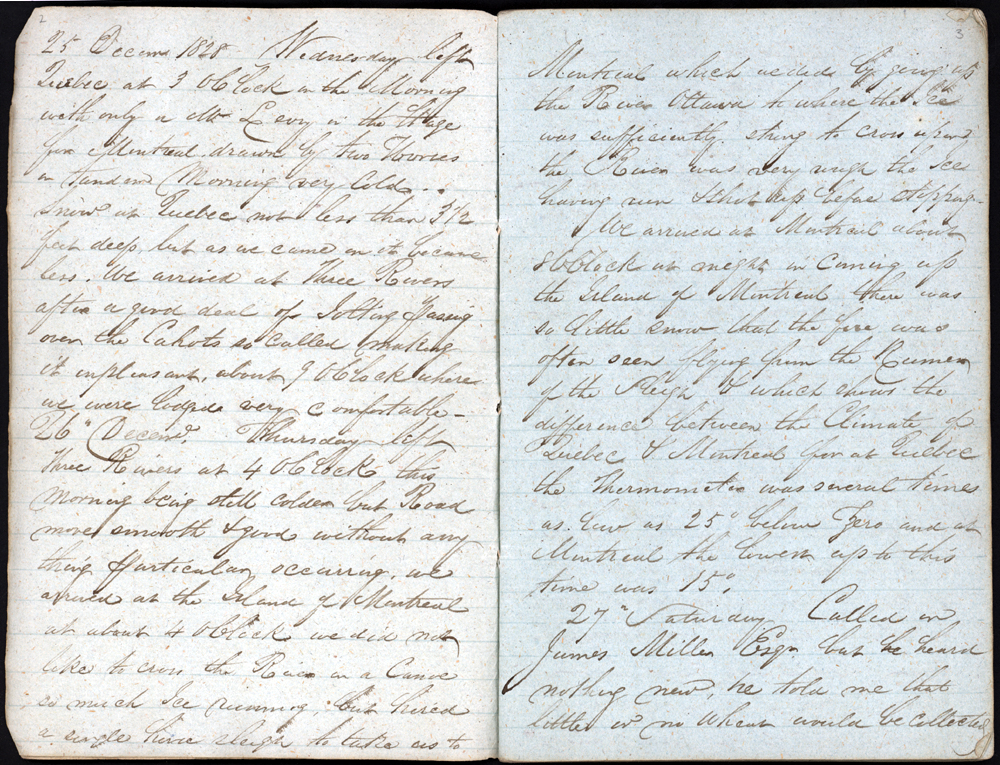 2
25 Decemr 1828 Wednesday left
Quebec at 3 OClock in the Morning
with only a Mr Levy in the Stage
for Montreal drawn by two Horses
in Tandem Morning very Cold..
Snow at Quebec not less than 3 1/2
feet deep, but as we came on it became
less. We arrived at Three Rivers
after a good deal of Jolting passing
over the Cahots so called making
it unpleasant, about 9 OClock where
we were lodged very comfortable -
26" Decemr. Thursday left
Three Rivers at 4 OClock this
Morning being still colder but Road
more smooth & good without any
thing particular occurring, we
arrived at the Island of Montreal
at about 4 OClock we did not
like to cross the River in a Canoe
so much Ice running, but hired
a single horse sleigh to take us to
3
Montreal which we did by going up
the River Ottawa to where the Ice
was sufficiently strong to cross upon
the River was very rough the Ice
having run & shot up before stopping -
We arrived at Montreal about
8 OClock at night in coming up
the Island of Montreal there was
so little snow that the fire was
often seen flying from the Runner
of the Sleigh & which shows the
difference between the Climate of
Quebec & Montreal for at Quebec
the Thermometer was several times
as low as 25° below Zero and at
Montreal the lowest up to this
time was 15°.
27" Saturday Called on
James Miller Esqr but he heard
nothing new, he told me that
little or no Wheat would be collected